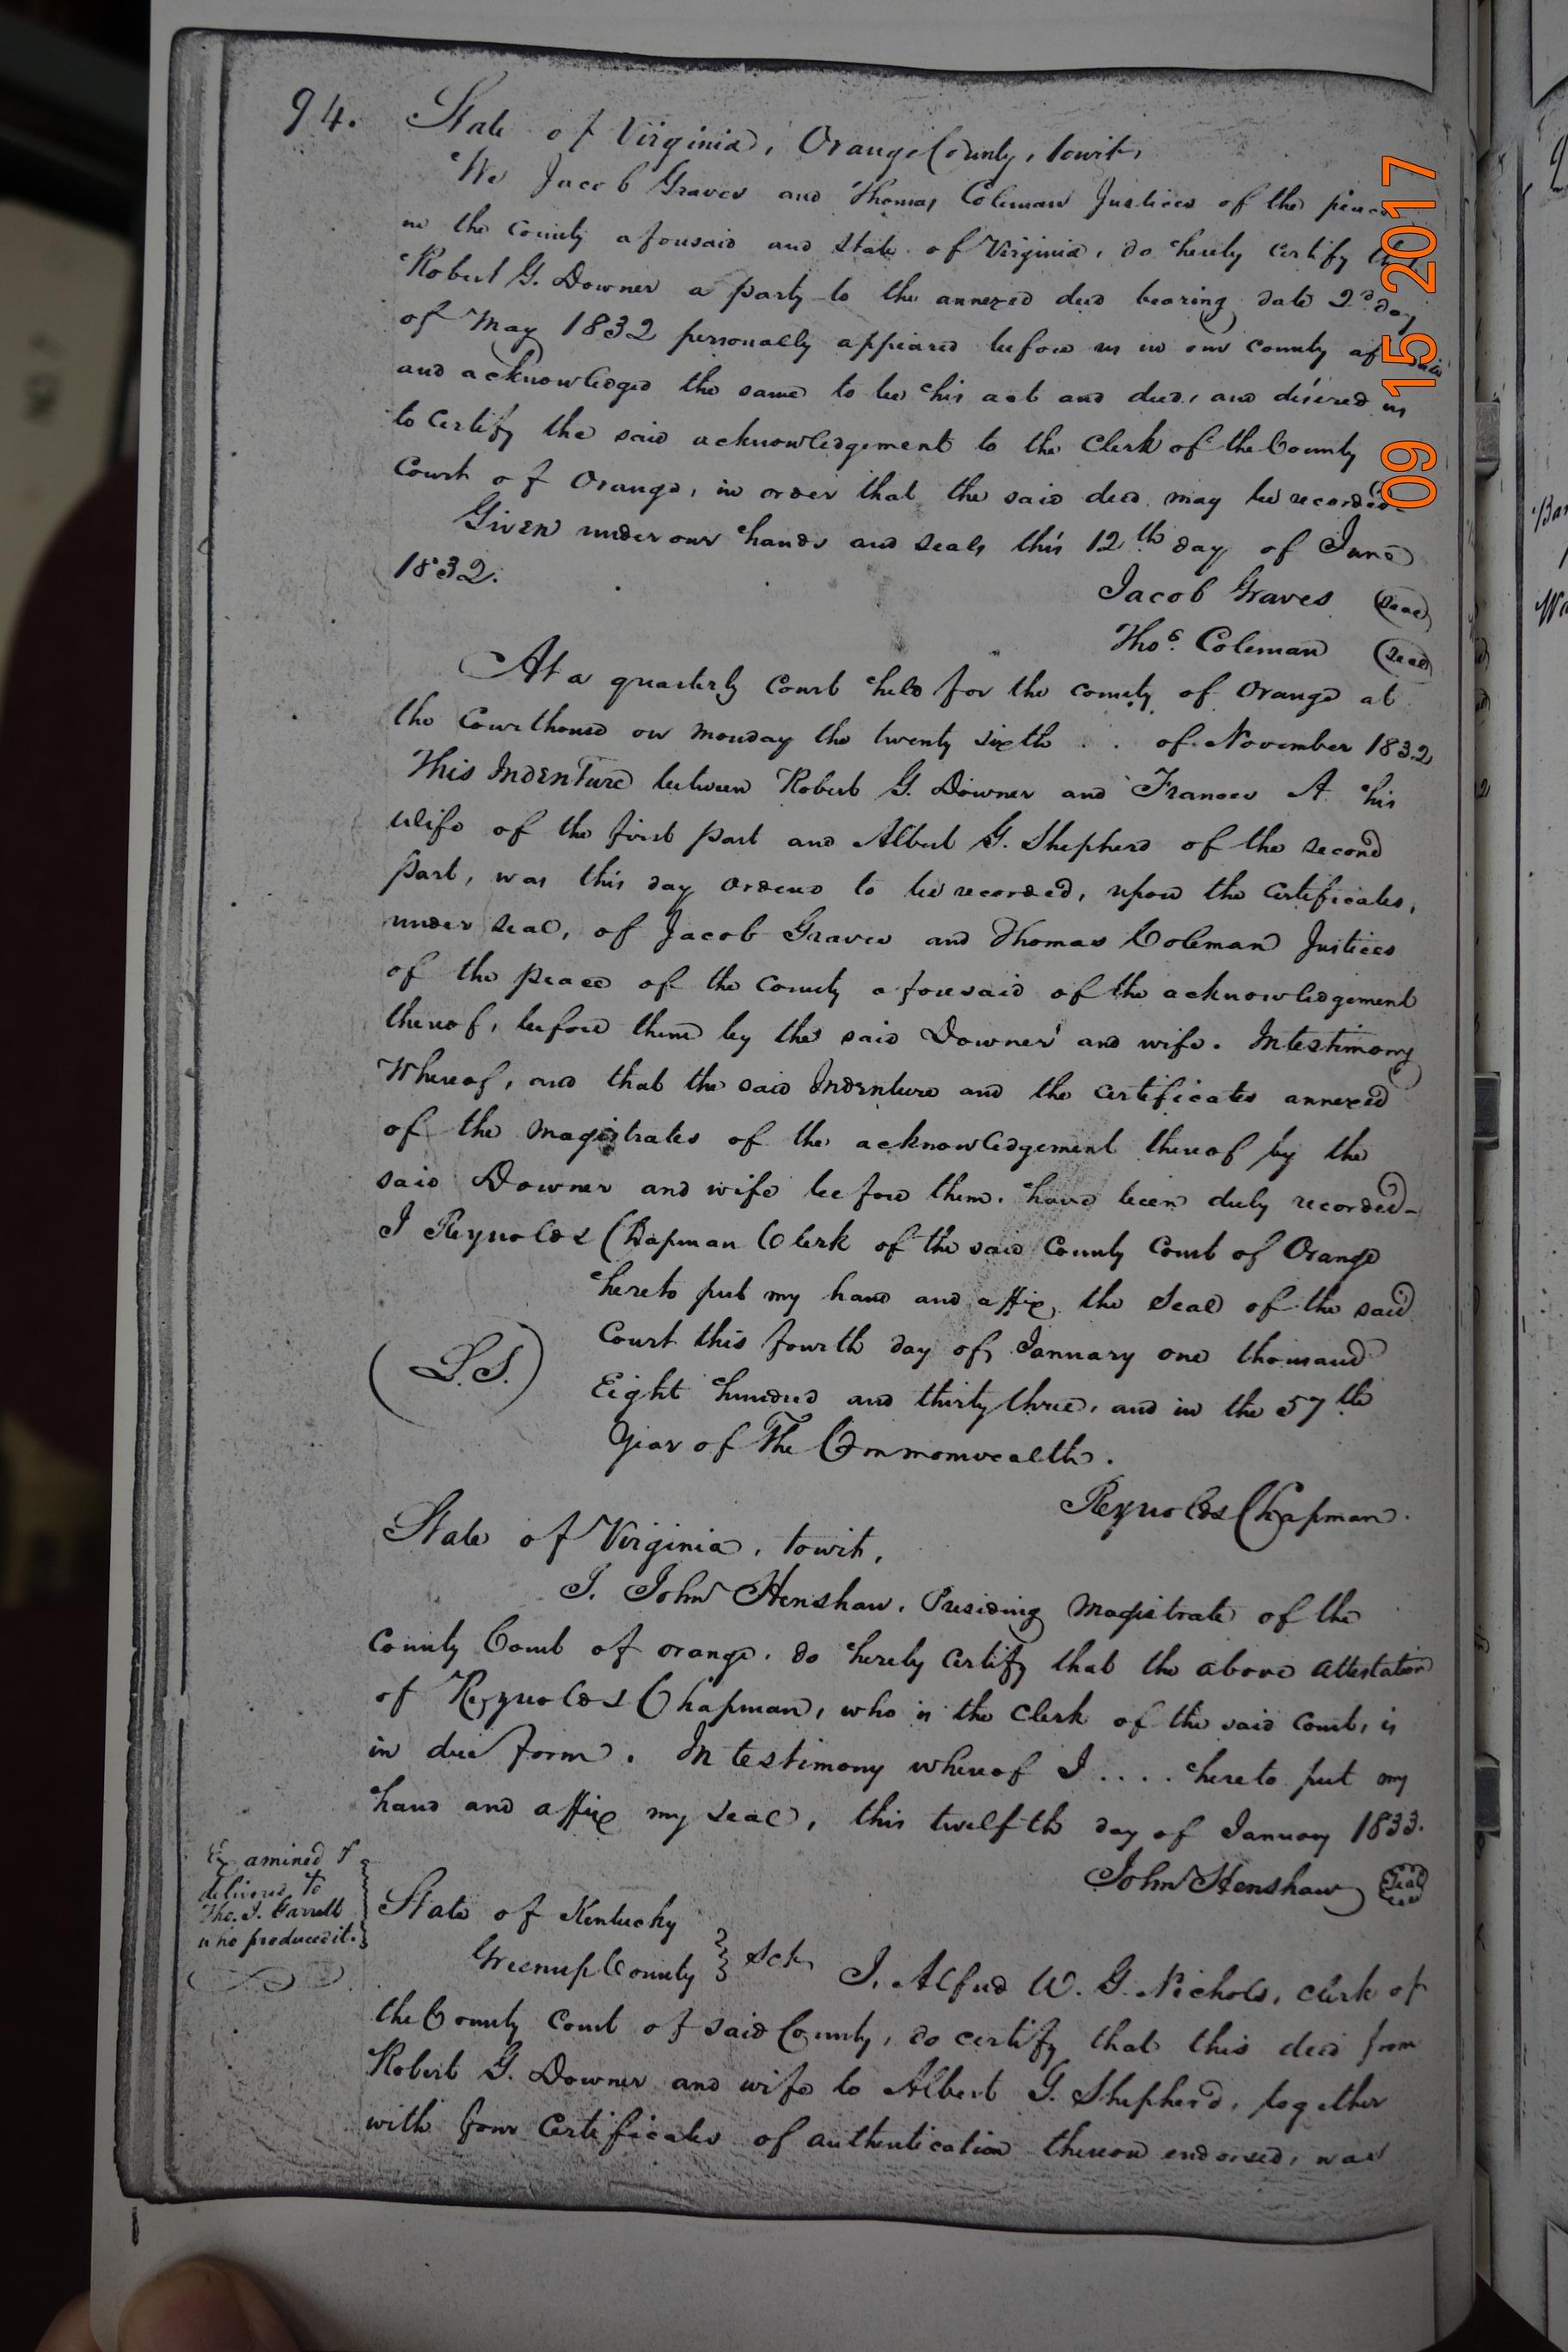 94. State of Virginia, Orange County, towit,
We Jacob Graves and Thomas Coleman Justices of the peace
in the County aforesaid and State of Virginia, do hereby certify that
Robert G. Downer a party to the annexed deed bearing date 2d day
of May 1832 personally appeared before us in our County aforesaid
and acknowledged the same to be his act and deed, and desired us
to certify the said acknowledgement to the Clerk of the County
Court of Orange, in order that the said deed may be recorded.
Given under our hands and seals this 12th day of June
1832.
Jacob Graves (Seal)
Thos. Coleman (Seal)
At a quarterly Court held for the county of Orange at
the Courthouse on Monday the twenty sixth . . of November 1832
This Indenture between Robert G. Downer and Frances A. his
Wife of the first part and Albert G. Shepherd of the second
part, was this day ordered to be recorded, upon the certificates,
under seal, of Jacob Graves and Thomas Coleman Justices
of the peace of the County aforesaid of the acknowledgement
thereof, before them by the said Downer and wife. In testimony
Whereof, and that the said Indenture and the certificates annexed
of the Magistrates of the acknowledgement thereof by the
said Downer and wife before them, have been duly recorded-
I Reynolds Chapman Clerk of the said County Court of Orange
hereto put my hand and affix the Seal of the said
(L.S.) Court this fourth day of January one thousand
Eight hundred and thirty three, and in the 57th
Year of The Commonwealth.
Reynolds Chapman.
State of Virginia, towit,
I. John Henshaw, Presiding Magistrate of the
County Court of orange, do hereby certify that the above attestation
of Reynolds Chapman, who is the Clerk of the said court, is
in due form. In testimony whereof I .... hereto put my
hand and affix my seal, this twelfth day of January 1833.
John Henshaw (Seal)
Examined &
delivered to
Tho. J. Garrett
who produced it.
State of Kentucky
Greenup County } Sct. I, Alfred W. G. Nichols, clerk of
the County Court of said County, do certify that this deed from
Robert G. Downer and wife to Albert G. Shepherd, together
with four Certificates of authentication thereon endorsed, was
09 15 2017